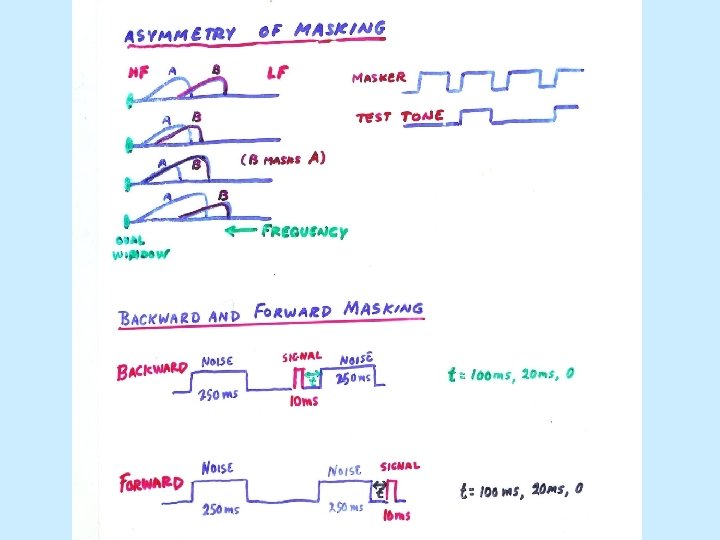 ASYMMETRY OF MASKING
HF A B LF
MASKER
TEST TONE
A B
A B (B MASKS A)
A B
OVAL
WINDOW
← FREQUENCY
BACKWARD AND FORWARD MASKING
BACKWARD NOISE SIGNAL NOISE
250 ms t 250 ms t = 100 ms, 20 ms, 0
10 ms
FORWARD NOISE NOISE SIGNAL
250 ms 250 ms t t = 100 ms, 20 ms, 0
10 ms